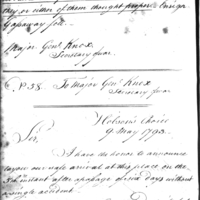 they or either of them thought proper. Ensign
Gassaway fell.
Major Genl. Knox
Secretary of War
No. 58. To Major Genl. Knox
Secretary of War
Hobson's Choice
9 May 1793.
Sir,
I have the honor to announce
to you our safe arrival at this place on the
5th instant after a passage of six days without
a single accident.